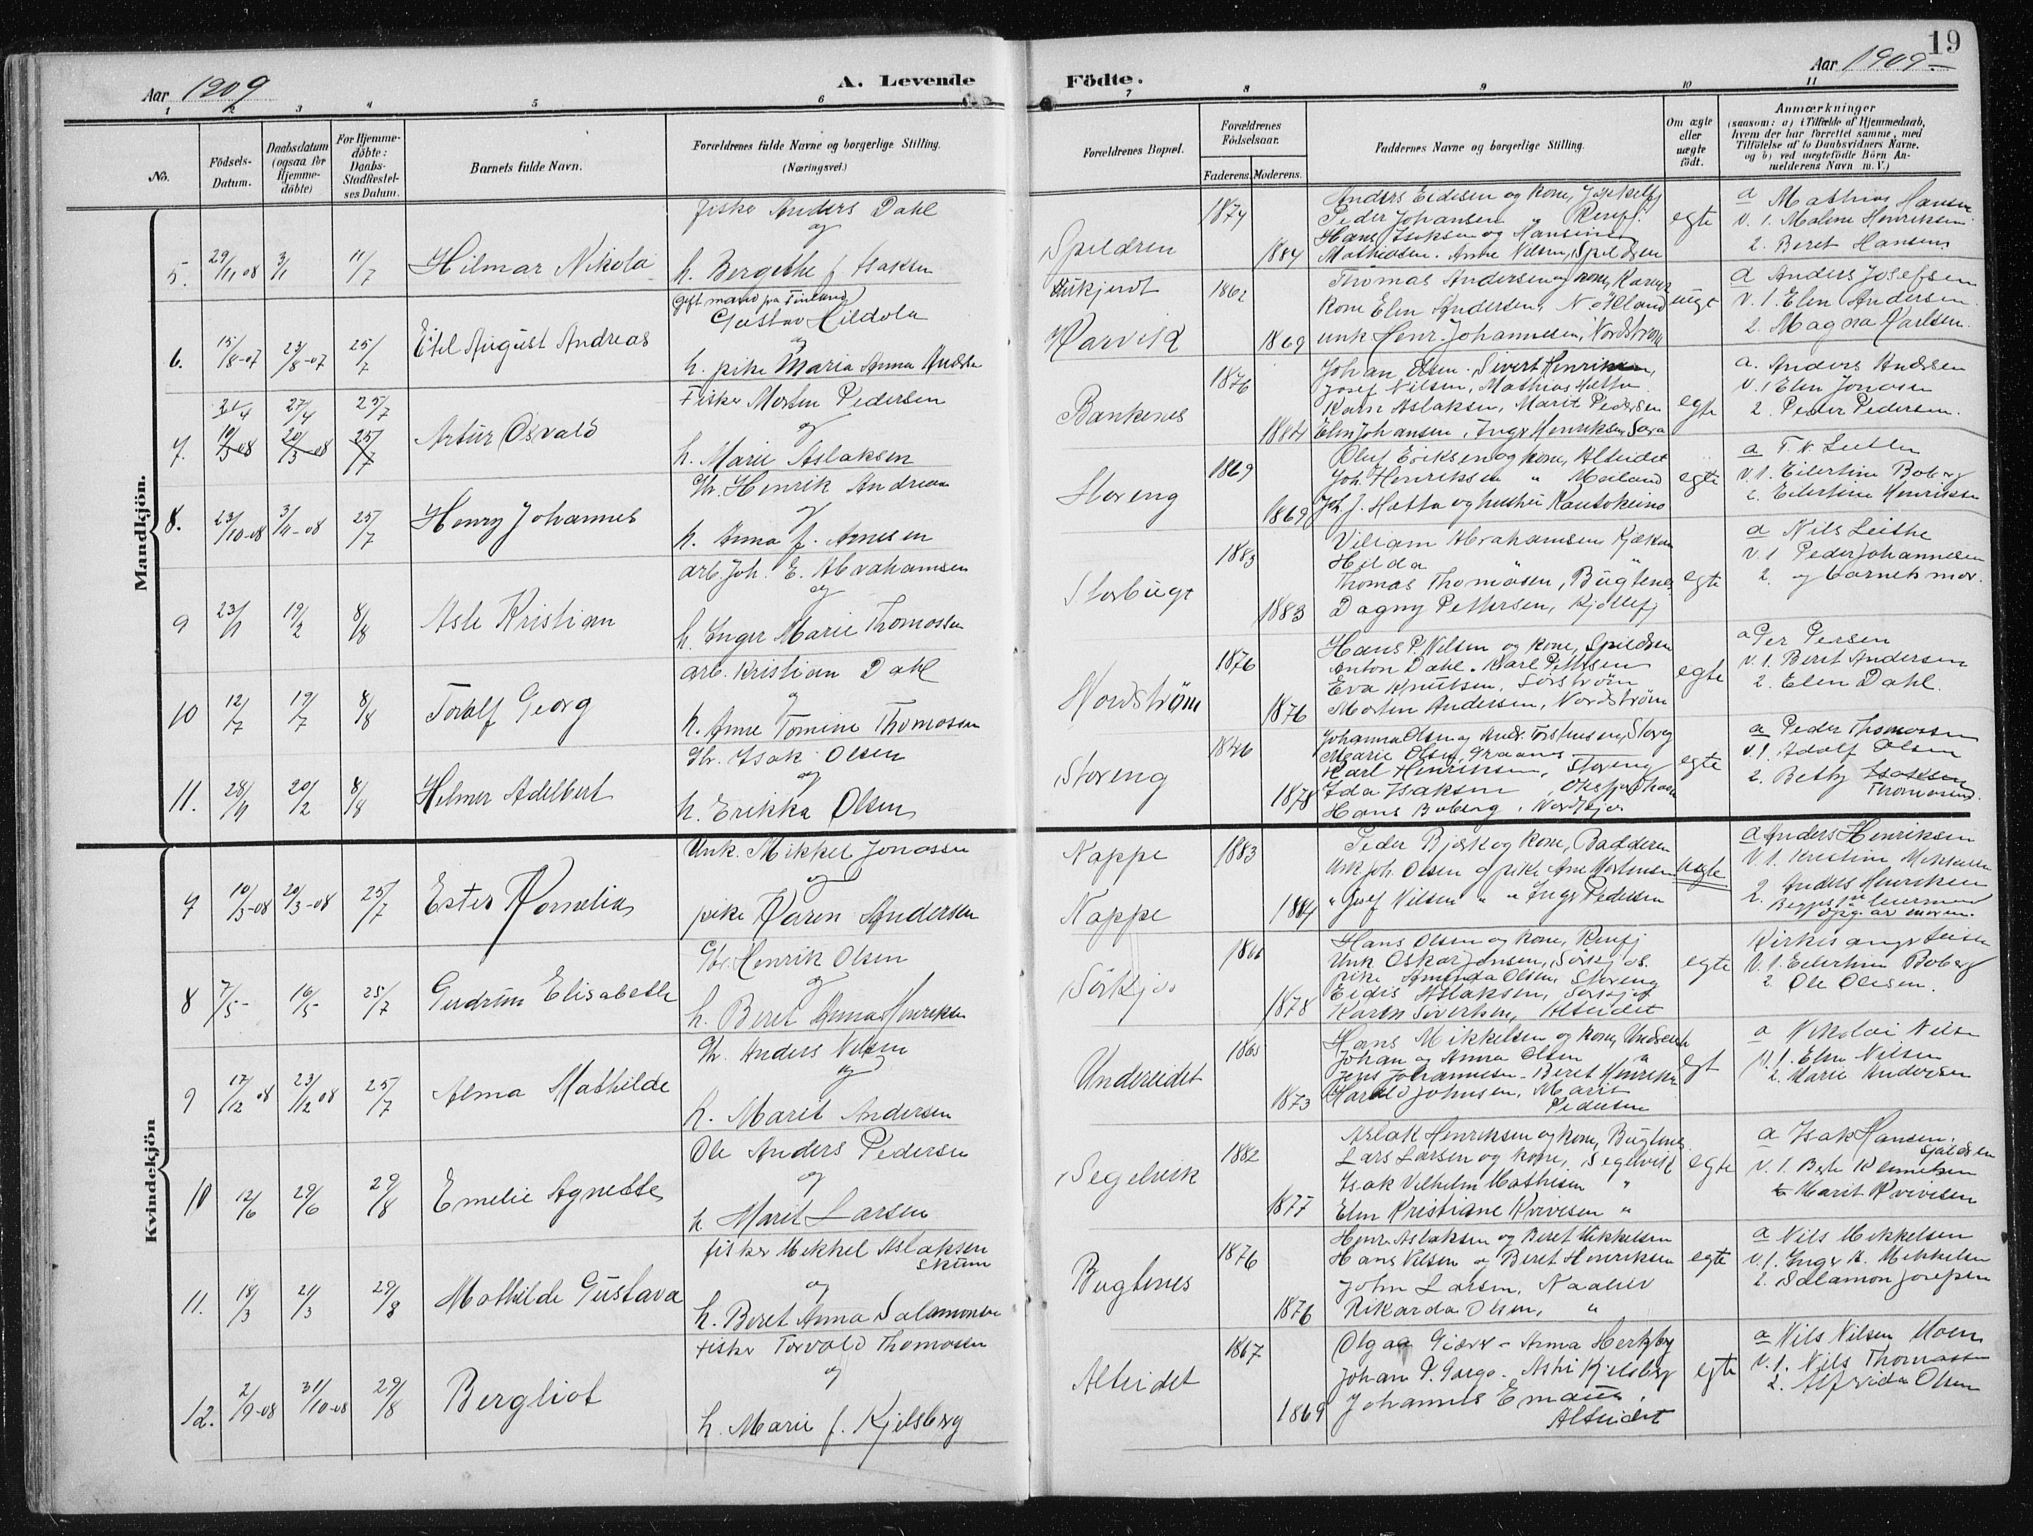 19
Aar 1909
A. Levende
Födte.
Aar 1909
1 2 3 4 5 6 7 8 9 10 11
No.
Födsels-Datum.
Daabsdatum (ogsaa for Hjemme-döbte)
For Hjemme-döbte: Daabs-Stadfæstel-ses Datum.
Barnets fulde Navn.
Forældrenes fulde Navne og borgerlige Stilling. (Næringsvei.)
Forældrenes Bopæl.
Forældrenes Födselsaar.
Faderens. Moderens.
Faddernes Navne og borgerlige Stilling.
Om ægte eller uægte födt.
Anmærkninger
(saasom: a) i Tilfælde af Hjemmedaab, hvem der har forrettet samme, med Tilföielse af to Daabsvidners Navne. og b) ved uegtefödte Börn An-melderens Navn m. V.)
Mandkjön.
5. 29/11 08 3/1 11/7 Hilmar Nikolai
fisker Anders Dahl
og
h. Bergethe f. Isaksen
Spildren 1874 1884
Anders Eidesen og kone, Jøkelfj
Peder Johansen " Renfj.
Hans Isaksen og Nansine
Mathiasen. Anne Nilsen, Spildren
egte
a Mathias Hansen
v. 1. Malene Henriksen
2. Beret Hansen
6. 15/8-07 23/8-07 25/7 Etel August Andreas
Gift mand fra Finland
Gustav Hildola
og
h. pike Maria Anna Andersen
Ukjendt 1862
Karvik 1869
Thomas Andersen og kone, Karvik
kone Elen Andersen, N okland
unk Henr. Johannesen, Nordstrøm
uegt
a Anders Josefsen
v. 1. Elen Andersen
2. Magna Karlsen.
7. 21/4 27/4 25/7
10/3-08 20/3-08 25/7 Artur Osvald
Fisker Morten Pedersen
og
h. Marie Aslaksen
Bankenes 1876 1884
Johan Olsen. Sivert Henriksen,
Josef Nilsen, Mathias Hætta.
Karn Aslaksen, Marit Pedersen
Elen Johansen, Inger Henriksen
egte
a. Anders Andersen
v. 1 Elen Jonasse
2. Peder Pedersen.
8. 23/10-08 3/11-08 25/7 Henry Johannes
Gbr. Henrik Andreas
og
h. Anna f. Arnesen
Storeng 1869 1869
Oluf Eriksen og kone, Alteidet
Joh. Henriksen " Meiland
Joh. J. Hætta og hustru Kautokeino
egte
a T. N. Leithe
v. 1. Eilertine Boberg
2. Eilertine Henriksen
9 23/1 19/2 8/8 Asle Kristian
arb. Joh. E. Abrahamsen
og
h. Inger Marie Thomassen
Storbugt 1883 1883
Viliam Abrahamsen Kjækan
Hilda
Thomas Thomasen, Bugtenes
Dagny Pettersen, Kjøllefj
egte
a Nils Leithe
v. 1 Peder Johannesen
2. og barnets mor.
10 12/7 17/7 8/8 Toralf Georg
arb. Kristian Dahl
og
h. Anne Tomine Thomassen
Nordstrøm 1876 1876
Hans P. Nilsen og kone, Spildren
Anton Dahl. Karl Pettersen
Eva Knutsen, Sørstrøm
Morten Andersen, Nordstrøm
egte
a Per Persen
v. 1. Beret Andersen
2. Elen Dahl.
11. 28/1 20/2 8/8 Helmer Adelbert
Gbr. Isak Olsen
og
h. Erikka Olsen
Storeng 1846 1878
Marie Olsen,
Karl Henriksen, Storeng
Ida Isaksen
Hans Boberg,
egte
a Peder Thomassen
v. 1. Adolf Olsen
2. Betty Isaksen
Thomassen.
Kvindekjön
7 10/3-08 20/3-08 25/7 Ester Kornelia
Unk. Mikkel Jonassen
og
pike Karen Andersen
Nappe 1883
Nappe 1884
Peder Bjørk og kone, Badderen
Unk Joh. Olsen og pike Ane Mortensen
" Josef Nilsen " " Inger Pedersen
uegte
a Anders Henriksen
v. 1. Kristine Mikkelsen
2. Anders Henriksen
opg. av moren.
8 7/5- 16/5 25/7 Gudrun Elisabeth
Gbr. Henrik Olsen
og
h. Beret Anna Henriksen
Sörkjos 1878
Hans Olsen og kone, Renfj
Unk Oskar Jensen, Sörkjos.
pike Amanda Olsen, Storeng
Eidis Aslaksen, Sörkjos
Karen Siversen, Alteidet
egte
Kirkesanger Leithe
v. 1. Eilertine Boberg
2 Ole Olesen.
9 17/12 08 23/12 08 25/7 Alma Mathilde
Gbr. Anders Nilsen
og
h. Maret Andersen
Undereidet 1873
Hans Mikkelsen og kone, Undereidet
Johan og Anna Olsen "
Jens Johannesen - Beret Henriksen
Harald Johnsen, Marit
Pedersen
egt
a Nikolai Nilsen
v. 1. Elen Nilsen
2. Marie Andersen
10 12/6 29/6 29/8 Emelie Agnethe
Ole Anders Pedersen
og
h Marit Larsen
Segelvik 1882 1877
Aslak Henriksen og kone, Bugtenes
Lars Larsen og kone, Segelvik
Isak Vilhelm Mathisen "
Elen Kristiane Kvivesen "
egte
a Isak Hansen,
v. 1.
Marit Kvivesen
11. 18/3 21/3 29/8 Mathilde Gustava
fisker Mikkel Aslaksen
Skum
og
h. Beret Anna Salamonsen
Bugtenes 1876 1876
Henr. Aslaksen og Beret Mikkelsen
Hans Nilsen og Beret Henriksen
John Larsen,
Rikarda Olsen, "
egte
a Nils Mikkelsen
v. 1. Inger A. Mikkelsen
2. Salamon Josefsen
12. 2/9-08 31/10-08 29/8 Bergliot
Fisker Torvald Thomassen
og
h. Marie f. Kjelsberg
Alteidet 1867 1869
Olga Giæver - Anna Hertzberg
Johan P. Gargo. Astri Kjelsberg
Johannes Emaus,
Alteidet
egte
a Nils Nilsen Moen
v. 1. Nils Thomassen
2. Alfrida Olsen